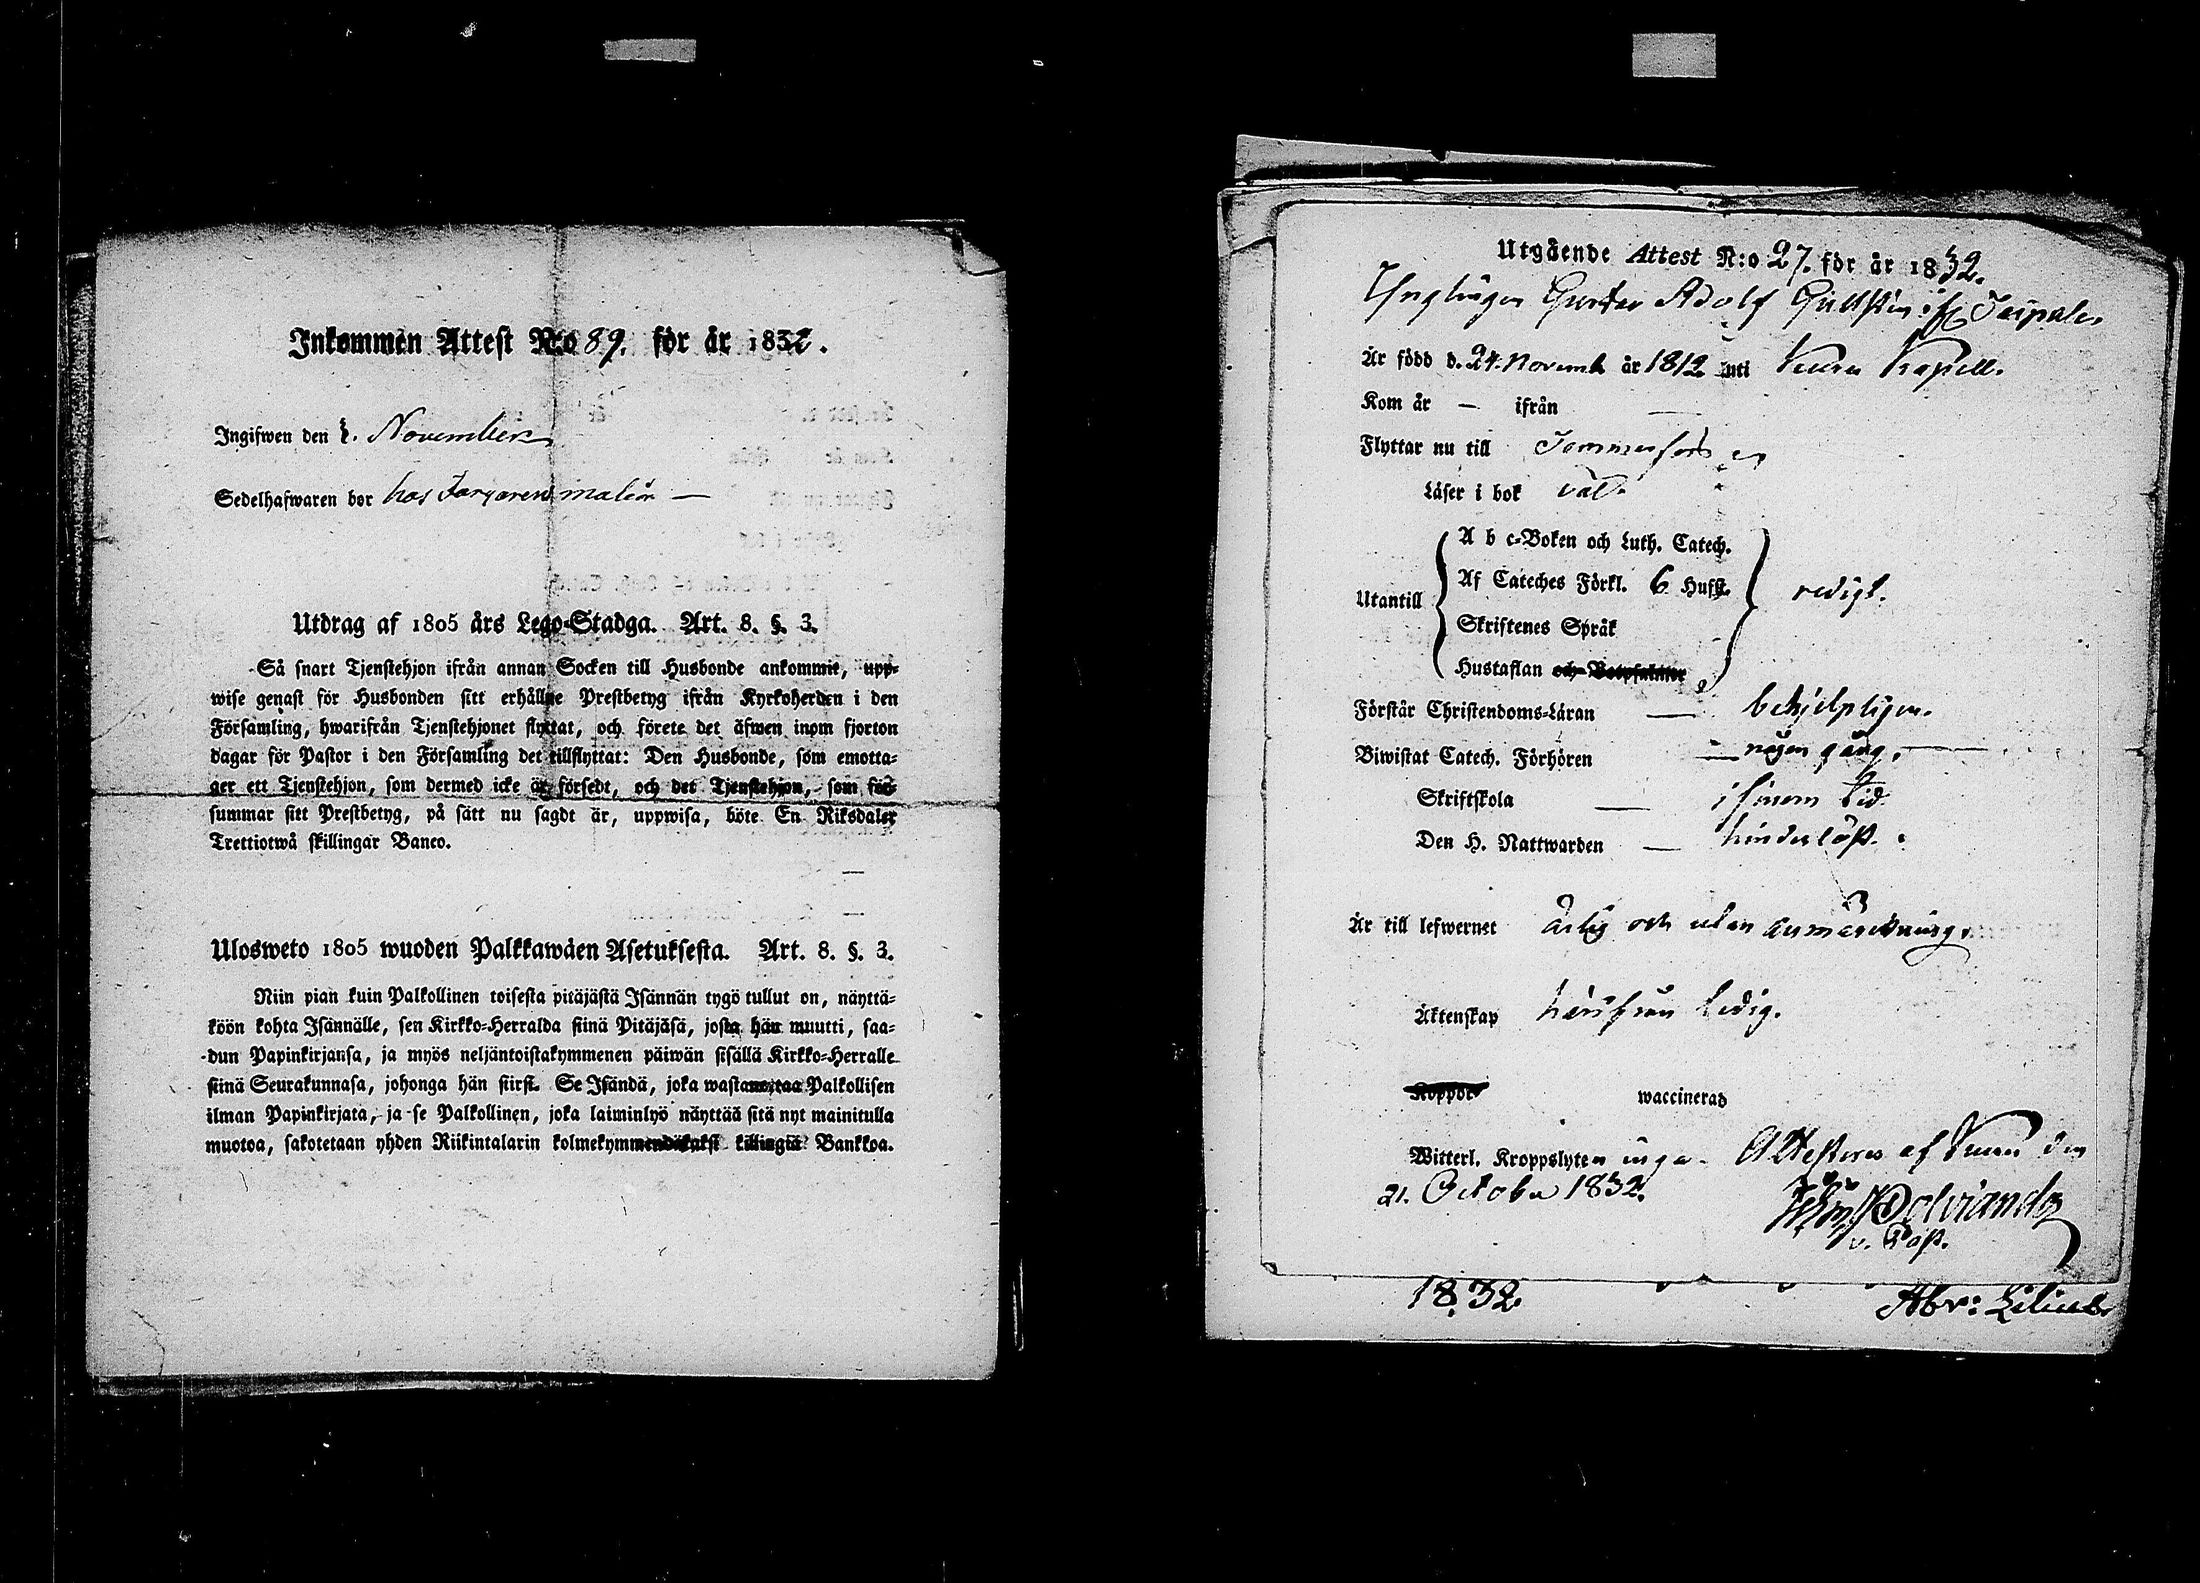 Inkommen Attest N:o 89. för år 1832.
Ingifwen den 2. November
Sedelhafwaren bor hos Fargaren malén —
Utdrag af 1805 års Lego-Stadga. Art. 8. §. 3.
Så snart Tjenstehjon ifrån annan Socken till Husbonde ankommit, upp-
wise genast för Husbonden sitt erhållne Prestbetyg ifrån Kyrkoherden i den
Församling, hwarifrån Tjenstehjonet flyttat, och förete det äfwen inom fjorton
dagar för Pastor i den Församling det tillflyttat: Den Husbonde, som emotta-
ger ett Tjenstehjon, som dermed icke är försedt, och det Tjenstehjon, som för-
summar sitt Prestbetyg, på sätt nu sagdt är, uppwisa, böte En Riksdaler
Trettiotwå skillingar Banco.
Ulosweto 1805 wuoden Palkkawäen Asetuksesta. Art. 8. §. 3.
Niin pian kuin Palkollinen toisesta pitäjästä Isännän tygö tullut on, näyttä-
köön kohta Isännälle, sen Kirkko-Herralda siinä Pitäjäsä, josta hän muutti, saa-
dun Papinkirjansa, ja myös neljäntoistakymmenen päiwän sisällä Kirkko-Herralle
siinä Seurakunnasa, johonga hän siirsi. Se Isändä, joka wastanottaa Palkollisen
ilman Papinkirjata, ja se Palkollinen, joka laiminlyö näyttää sitä nyt mainitulla
muotoa, sakotetaan yhden Riikintalarin kolmekymmendäkaksi killingiä Bankkoa.
Utgående Attest N:o 27. för år 1832.
Ynglingen Gustav Adolf Gullstén if Taipale
Är född d. 24. Novemb år 1812 inti Keuru Kapell.
Kom år — ifrån —
Flyttar nu till Tammerfors
Läser i bok väl.
A b c-Boken och Luth. Catech.
Af Cateches Förkl. 6 Hufst.
Utantill redigt.
Skriftenes Språk
Hustaflan och Botpsalmer
Förstår Christendoms-Läran — behjelpligen.
Biwistat Catech. Förhören — någon gång.
Skriftskola — i sinom tid
Den H. Nattwarden — hinderlöst.
Är till lefwernet ärlig och utan anmärckning.
Äktenskap härifrån ledig.
Koppor waccinerad
Witterl. Kroppslyten inga. Attesteras af Keuru den
21. October 1832.
v. Past.
1832 Abr: Lilius